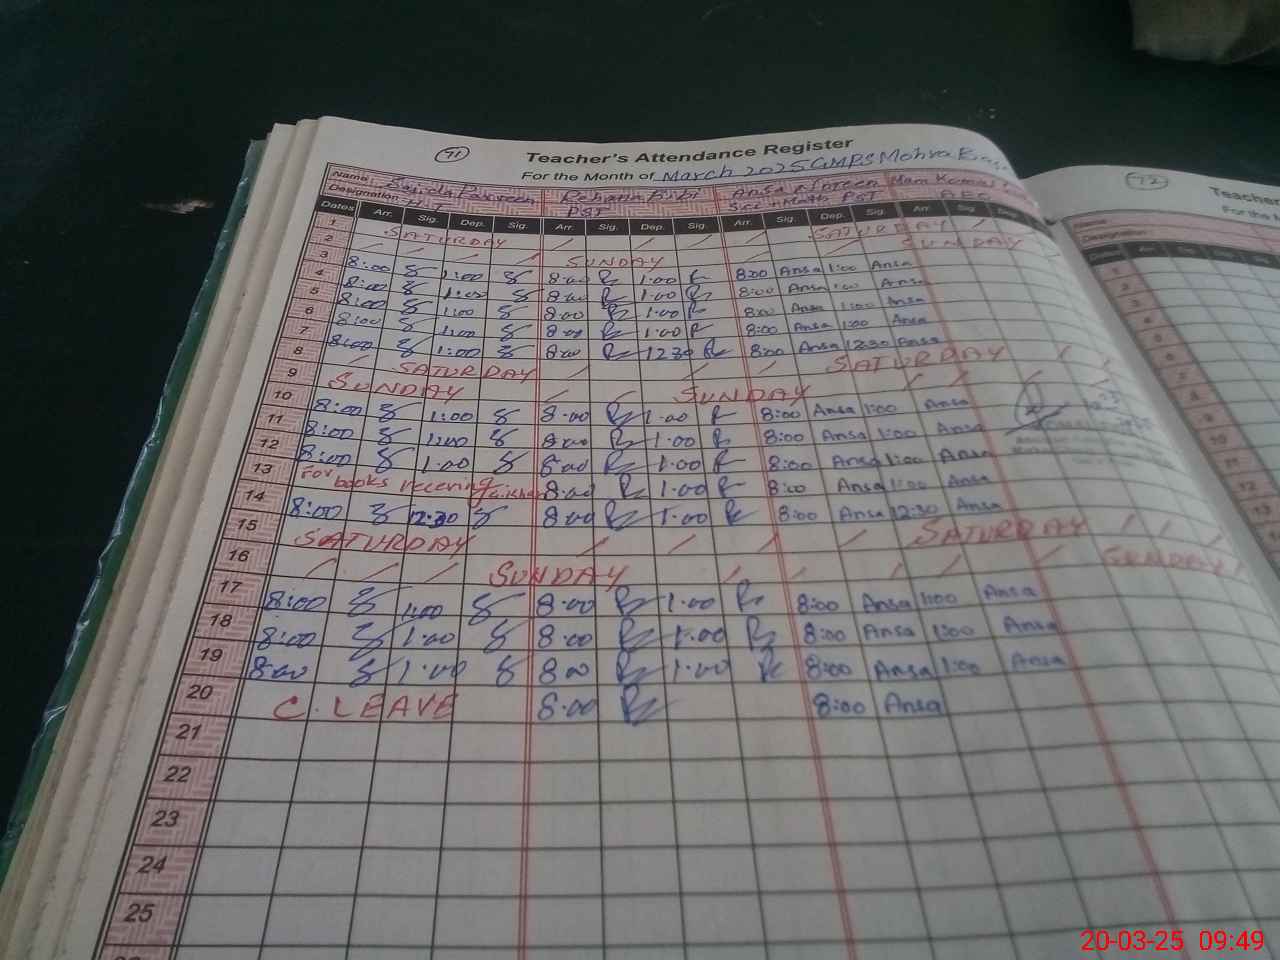 71 Teacher's Attendance Register
For the Month of March 2025 GMPS Mohra
Name: Sajida Parveen Rehana Bibi Ansa Nureen
Designation: H.T PST Sci-Math PST
Dates Arr. Sig. Dep. Sig. Arr. Sig. Dep. Sig. Arr. Sig. Dep. Sig. Arr. Sig. Dep.
1 SATURDAY / / / / SATURDAY / /
2 / / / / SUNDAY SUNDAY
3 8:00 1:00 8:00 R 1:00 R 8:00 Ansa 1:00 Ansa
4 8:00 1:00 8:00 R 1:00 R 8:00 Ansa 1:00 Ansa
5 8:00 1:00 8:00 R 1:00 R 8:00 Ansa 1:00 Ansa
6 8:00 1:00 8:00 R 1:00 R 8:00 Ansa 1:00 Ansa
7 8:00 1:00 8:00 R 12:30 R 8:00 Ansa 12:30 Ansa
8 / SATURDAY / / / / SATURDAY / /
9 SUNDAY / / SUNDAY / /
10 8:00 1:00 8:00 R 1:00 R 8:00 Ansa 1:00 Ansa
11 8:00 1:00 8:00 R 1:00 R 8:00 Ansa 1:00 Ansa
12 8:00 1:00 8:00 R 1:00 R 8:00 Ansa 1:00 Ansa
13 For books receving 8:00 R 1:00 R 8:00 Ansa 1:00 Ansa
14 8:00 12:30 8:00 R 1:00 R 8:00 Ansa 12:30 Ansa
15 SATURDAY / / / / SATURDAY / / /
16 / / / SUNDAY / / / / / SUNDAY
17 8:00 1:00 8:00 R 1:00 R 8:00 Ansa 1:00 Ansa
18 8:00 1:00 8:00 R 1:00 R 8:00 Ansa 1:00 Ansa
19 8:00 1:00 8:00 R 1:00 R 8:00 Ansa 1:00 Ansa
20 C. LEAVE 8:00 R 8:00 Ansa
21
22
23
24
25
72
Teacher's
For the
Name:
Designation:
Dates
1
2
3
4
5
6
7
8
9
10
11
12
13
20-03-25 09:49